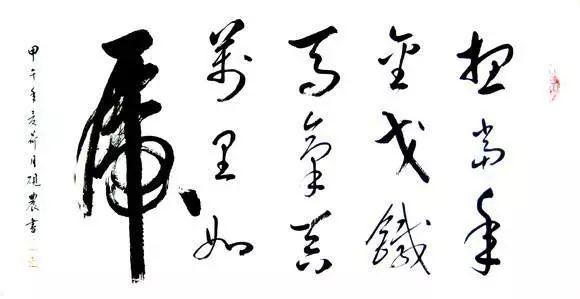 想當年
金戈鐵
馬氣吞
萬里如
虎
甲午年夏荷月硯農書